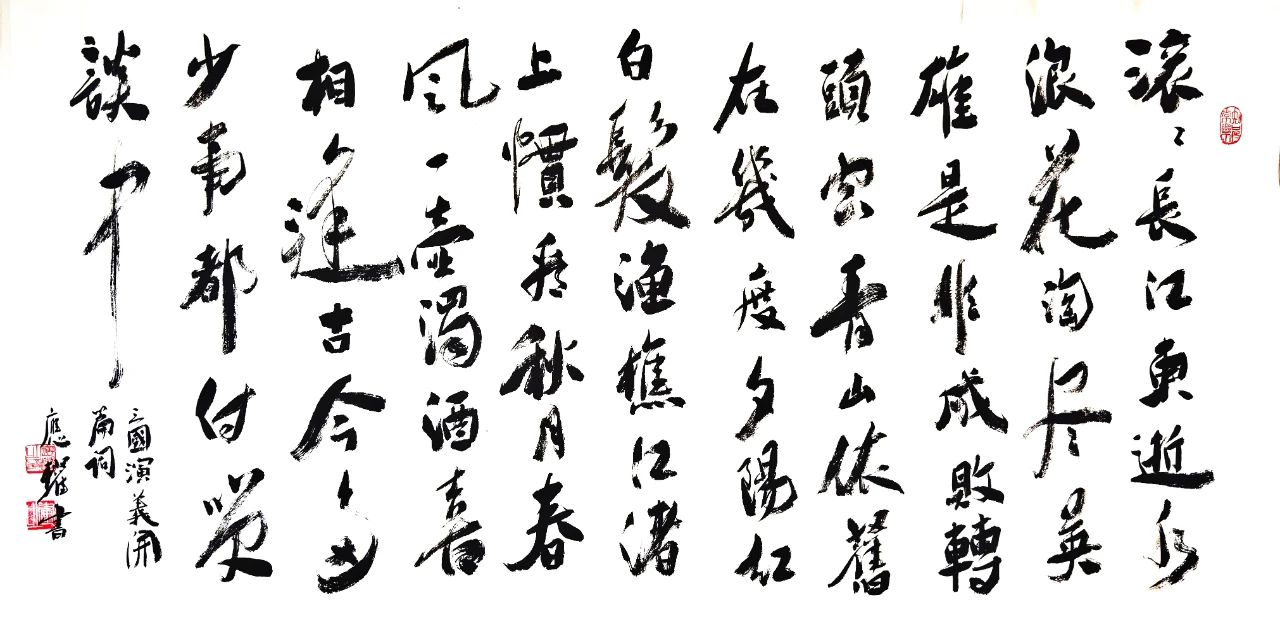 滚〻長江東逝水
浪花淘尽英
雄是非成敗轉
頭空青山依舊
在幾度夕陽紅
白髮漁樵江渚
上慣看秋月春
風一壺濁酒喜
相逢古今多
少事都付笑
談中
三國演義開
篇詞
應耀書